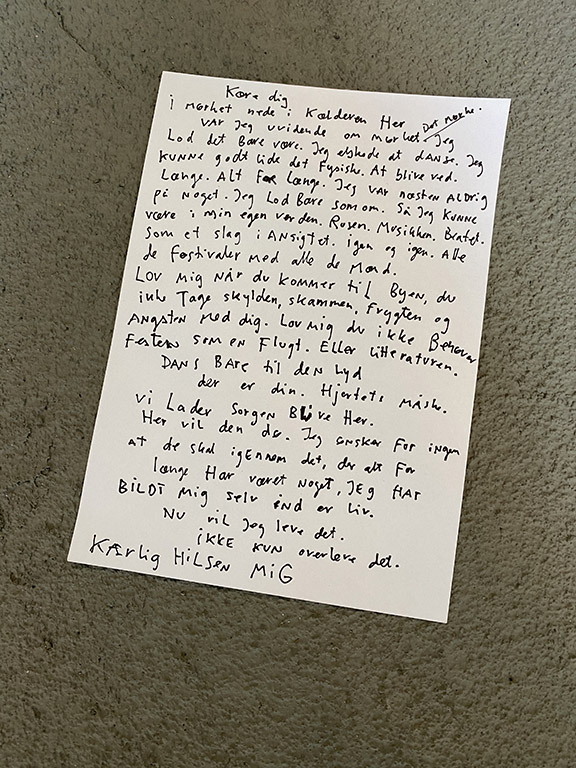 Kære dig.
i mørket nede i Kælderen Her
var jeg uvidende om mørket. Det mørke. Jeg
Lod det Bare være. Jeg elskede at danse. Jeg
kunne godt lide det Fysiske. At blive ved.
Længe. Alt For længe. Jeg var næsten ALDRIG
på noget. Jeg Lod Bare som om. Så Jeg kunne
være i min egen verden. Rusen. Musikken. Beatet.
som et slag i Ansigtet. igen og igen. Alle
de Festivaler med alle de Mænd.
Lov mig når du kommer til Byen, du
ikke Tage skylden, skammen, Frygten og
Angsten med dig. Lov mig du ikke Behøver
Festen som en Flugt. Eller litteraturen.
DANS BARE til den lyd
der er din. Hjertets måske.
Vi Lader Sorgen Blive Her.
Her vil den dø. Jeg ønsker For ingen
at de skal igennem det, der alt For
længe Har været noget, JEG HAR
BILDT mig selv IND er liv.
NU vil Jeg leve det.
iKKE KUN overleve det.
KÆrlig HiLSEN MiG